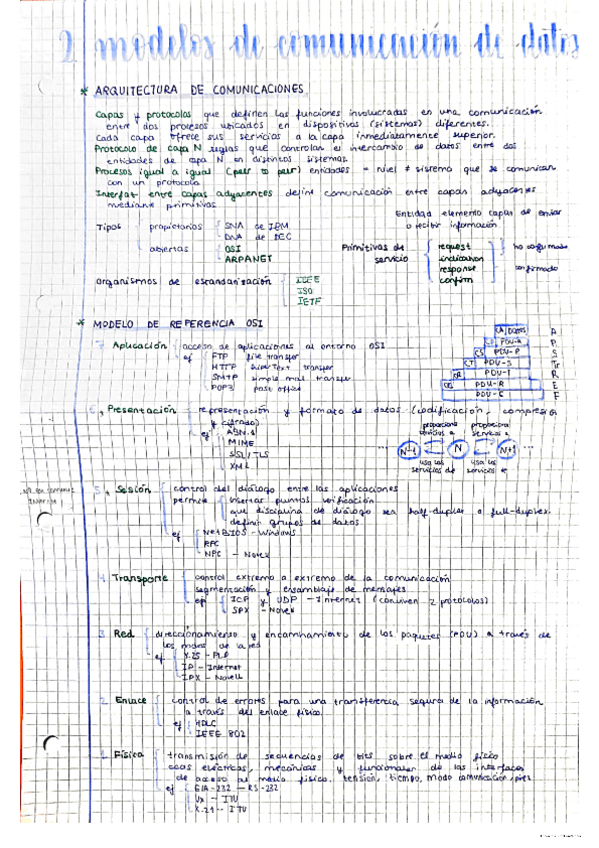 2 modelos de comunicación de datos
* ARQUITECTURA DE COMUNICACIONES
Capas y protocolos que definen las funciones involucradas en una comunicación
entre dos procesos ubicados en dispositivos (sistemas) diferentes.
Cada capa ofrece sus servicios a la capa inmediatamente superior.
Protocolo de capa N reglas que controlan el intercambio de datos entre dos
entidades de capa N en distintos sistemas
Procesos igual a igual (peer to peer) entidades = nivel ≠ sistema que se comunican
con un protocolo
Interfaz entre capas adyacentes define comunicación entre capas adyacentes
mediante primitivas
Entidad elemento capaz de enviar
o recibir información
Tipos propietarios SNA de IBM
DNA de DEC
abiertas OSI
ARPANET
Primitivas de servicio
request
indication
response
confirm
no confirmado
confirmado
organismos de estandarización IEEE
ISO
IETF
* MODELO DE REFERENCIA OSI
7. Aplicación acceso de aplicaciones al entorno OSI
ej FTP file transfer
HTTP hypertext transfer
SMTP simple mail transfer
POP3 post office
CA DATOS A
CP PDU-A P
CS PDU-P S
CT PDU-S Tr
CR PDU-T R
CE PDU-R E
PDU-E F
6. Presentación representación y formato de datos (codificación, compresión
y cifrado)
ej ASN.1
MIME
SSL/TLS
XML
proporciona servicios a
proporciona servicios a
N-1 N N+1
usa los servicios de
usa los servicios de
5. Sesión control del diálogo entre las aplicaciones
permite insertar puntos verificación
que disciplina de diálogo sea half-duplex o full-duplex.
definir grupos de datos
ej NetBIOS - Windows
RPC
NPC - Novell
4. Transporte control extremo a extremo de la comunicación
segmentación y ensamblaje de mensajes
ej TCP y UDP - Internet (conviven 2 protocolos)
SPX - Novell
3. Red direccionamiento y encaminamiento de los paquetes (PDU) a través de
los nodos de la red
ej X.25 - PLP
IP - Internet
IPX - Novell
2. Enlace control de errores para una transferencia segura de la información
a través del enlace físico.
ej HDLC
IEEE 802
1. Física transmisión de secuencias de bits sobre el medio físico
eléctricas, mecánicas y funcionales de las interfaces
de acceso al medio físico. tensión, tiempo, modo comunicación, pines
ej EIA-232 - RS-232
Vx - ITU
X.21 - ITU